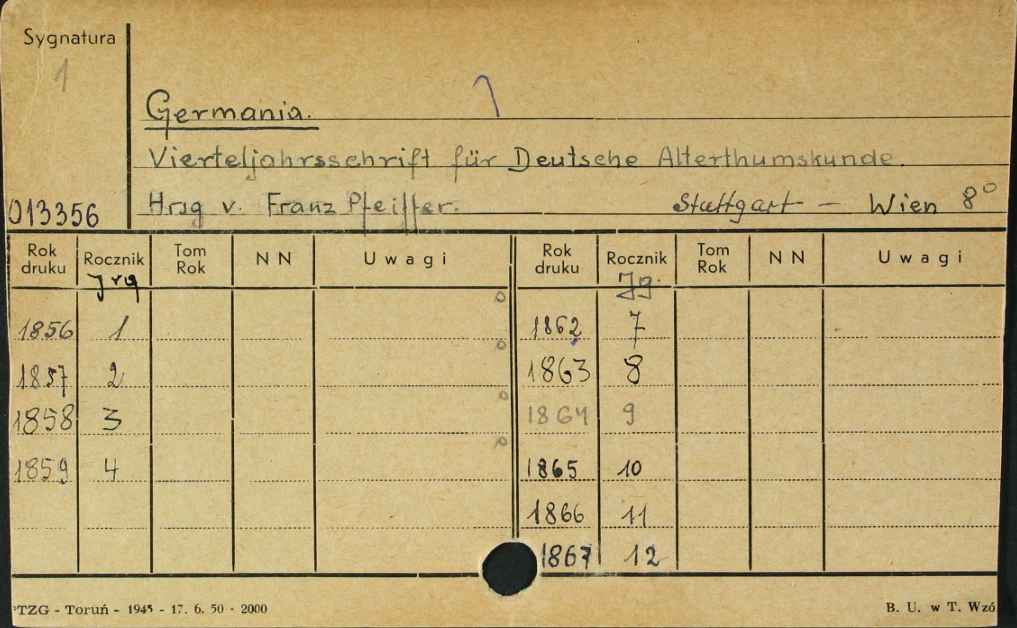 Sygnatura
1
Germania.
Vierteljahrsschrift für Deutsche Alterthumskunde.
013356 Hrsg v. Franz Pfeiffer. Stuttgart - Wien 8°
Rok druku Rocznik Tom Rok NN Uwagi Rok druku Rocznik Tom Rok NN Uwagi
Jrg Jg.
1856 1 1862 7
1857 2 1863 8
1858 3 1864 9
1859 4 1865 10
1866 11
1867 12
PTZG - Toruń - 1945 - 17. 6. 50 - 2000 B. U. w T. Wzó